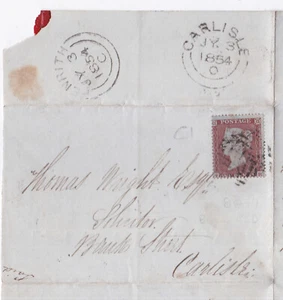 PENRITH
JY 3
1854
C
CARLISLE
JY 3
1854
C
POSTAGE
G1
Thomas Wright Esqr
Solicitor
Bank Street
Carlisle
Paid